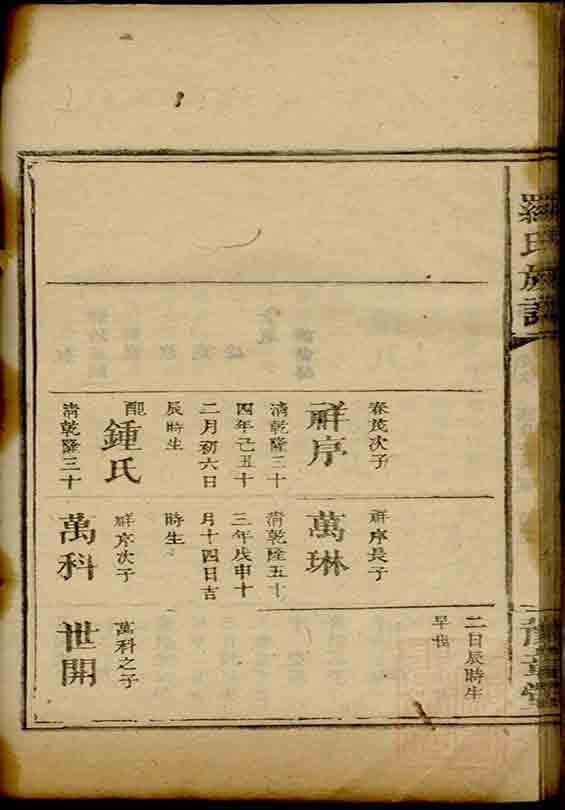 羅氏族譜
春茂次子
祥序
清乾隆三十
四年己丑十
二月初六日
辰時生
配
鍾氏
清乾隆三十
祥序長子
萬琳
清乾隆五十
三年戊申十
月十四日吉
時生
祥序次子
萬科
二日辰時生
早世
萬科之子
世開
豫章堂